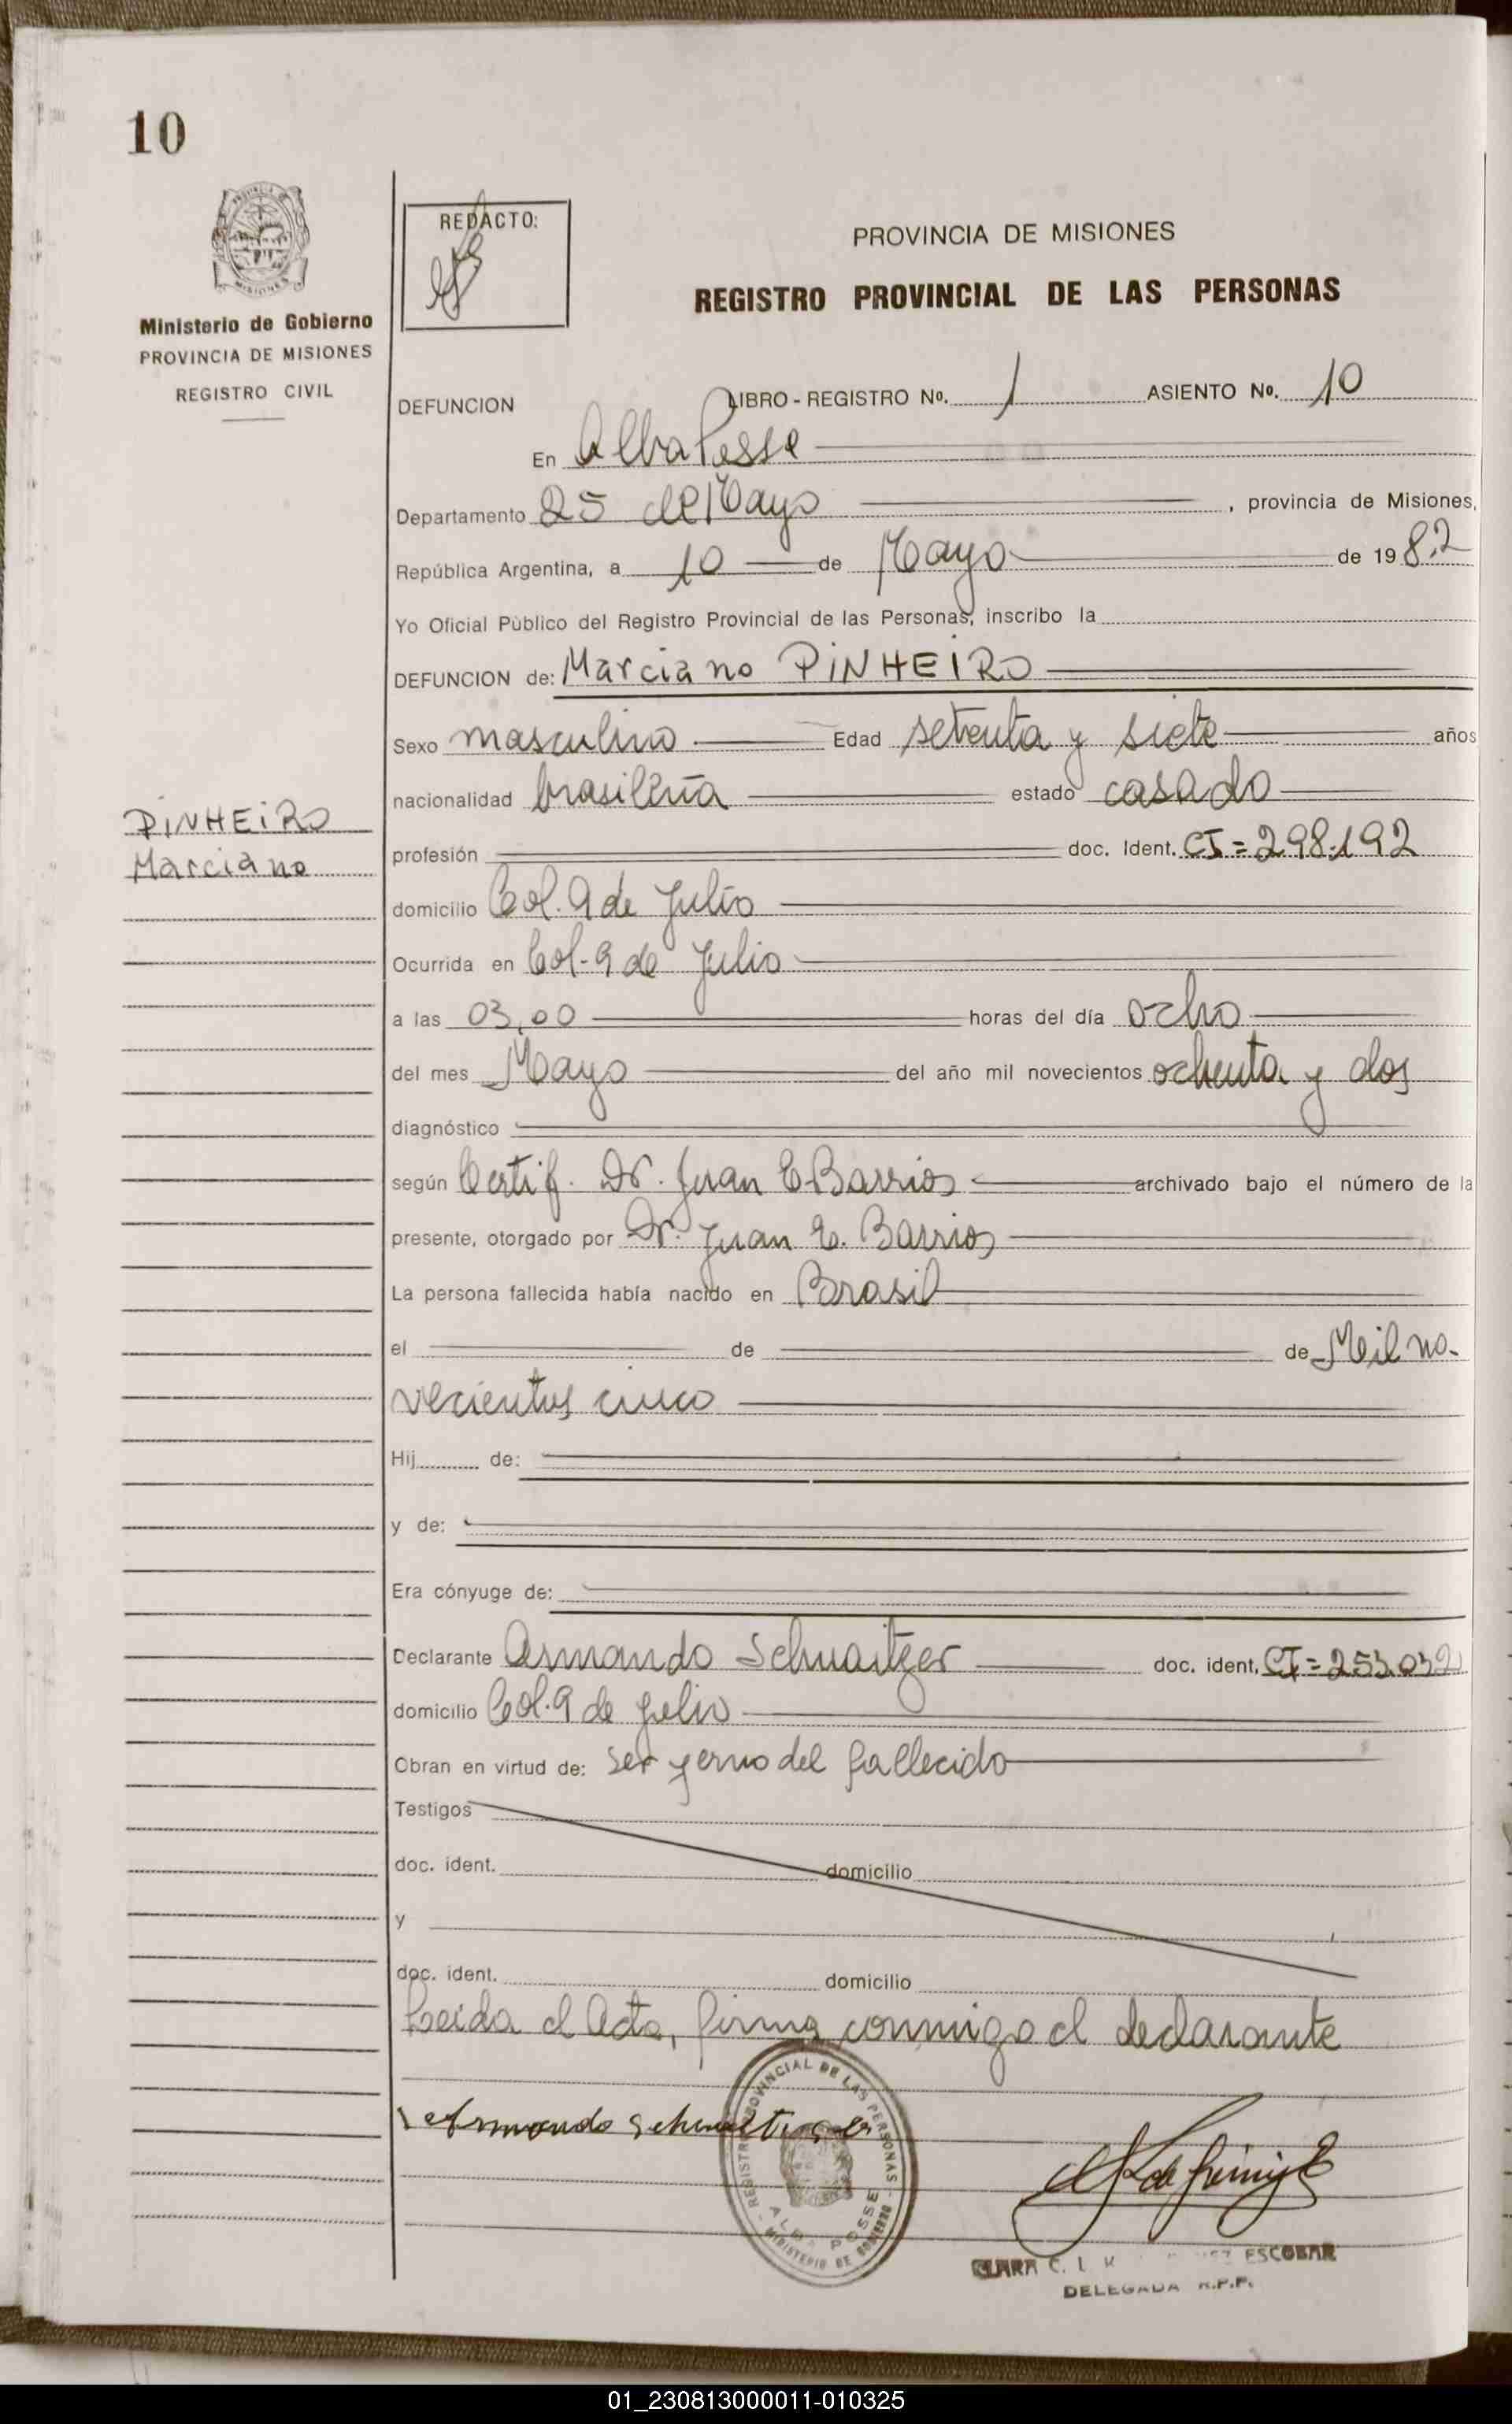 10
REDACTO:
PROVINCIA DE MISIONES
REGISTRO PROVINCIAL DE LAS PERSONAS
Ministerio de Gobierno
PROVINCIA DE MISIONES
REGISTRO CIVIL
DEFUNCION LIBRO - REGISTRO No. 1 ASIENTO No. 10
En Alba Posse
Departamento 25 de Mayo , provincia de Misiones,
República Argentina, a 10 de Mayo de 1982
Yo Oficial Público del Registro Provincial de las Personas, inscribo la
DEFUNCION de: Marciano PINHEIRO
Sexo masculino Edad setenta y siete años
nacionalidad brasileña estado casado
PINHEIRO
Marciano
profesión doc. Ident. CI = 298.192
domicilio Col. 9 de Julio
Ocurrida en Col - 9 de Julio
a las 03,00 horas del día ocho
del mes Mayo del año mil novecientos ochenta y dos
diagnóstico
según Certif. Dr. Juan E Barrios archivado bajo el número de la
presente, otorgado por Dr. Juan E. Barrios
La persona fallecida había nacido en Brasil
el de de Mil no-
vecientos cinco
Hij de:
y de:
Era cónyuge de:
Declarante Armando Schwaitzer doc. ident. CI = 253.032
domicilio Col. 9 de Julio
Obran en virtud de: ser yerno del fallecido
Testigos
doc. ident. domicilio
y
doc. ident. domicilio
Leida el Acta, firma conmigo el declarante
REGISTRO PROVINCIAL DE LAS PERSONAS
ALBA POSSE
MINISTERIO DE GOBIERNO
Armando
CLARA C. I. ESCOBAR
DELEGADA R.P.P.
01_230813000011-010325